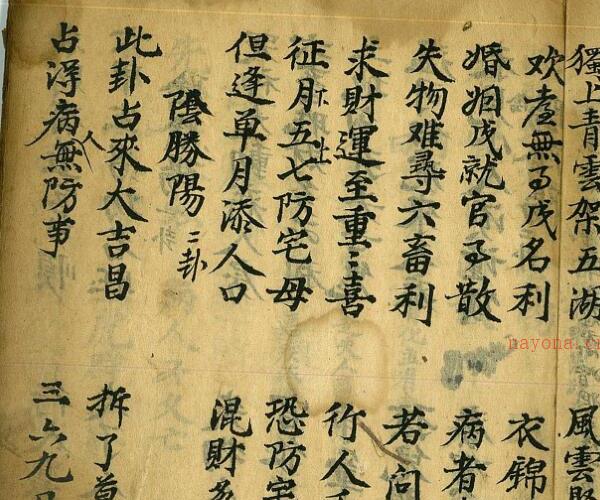 獨上青雲架五湖
風雲
欢是無子戊名利
衣錦
婚姻戊就官子散
病者
失物难尋六畜利
若问
求財運至重〻喜
行人
征月五七防宅母
下土
恐防宅
但逢單月添人口
混財
陰勝陽二卦
此卦占來大吉昌
拆了
占浮病人無防事
三六九
nayona.c